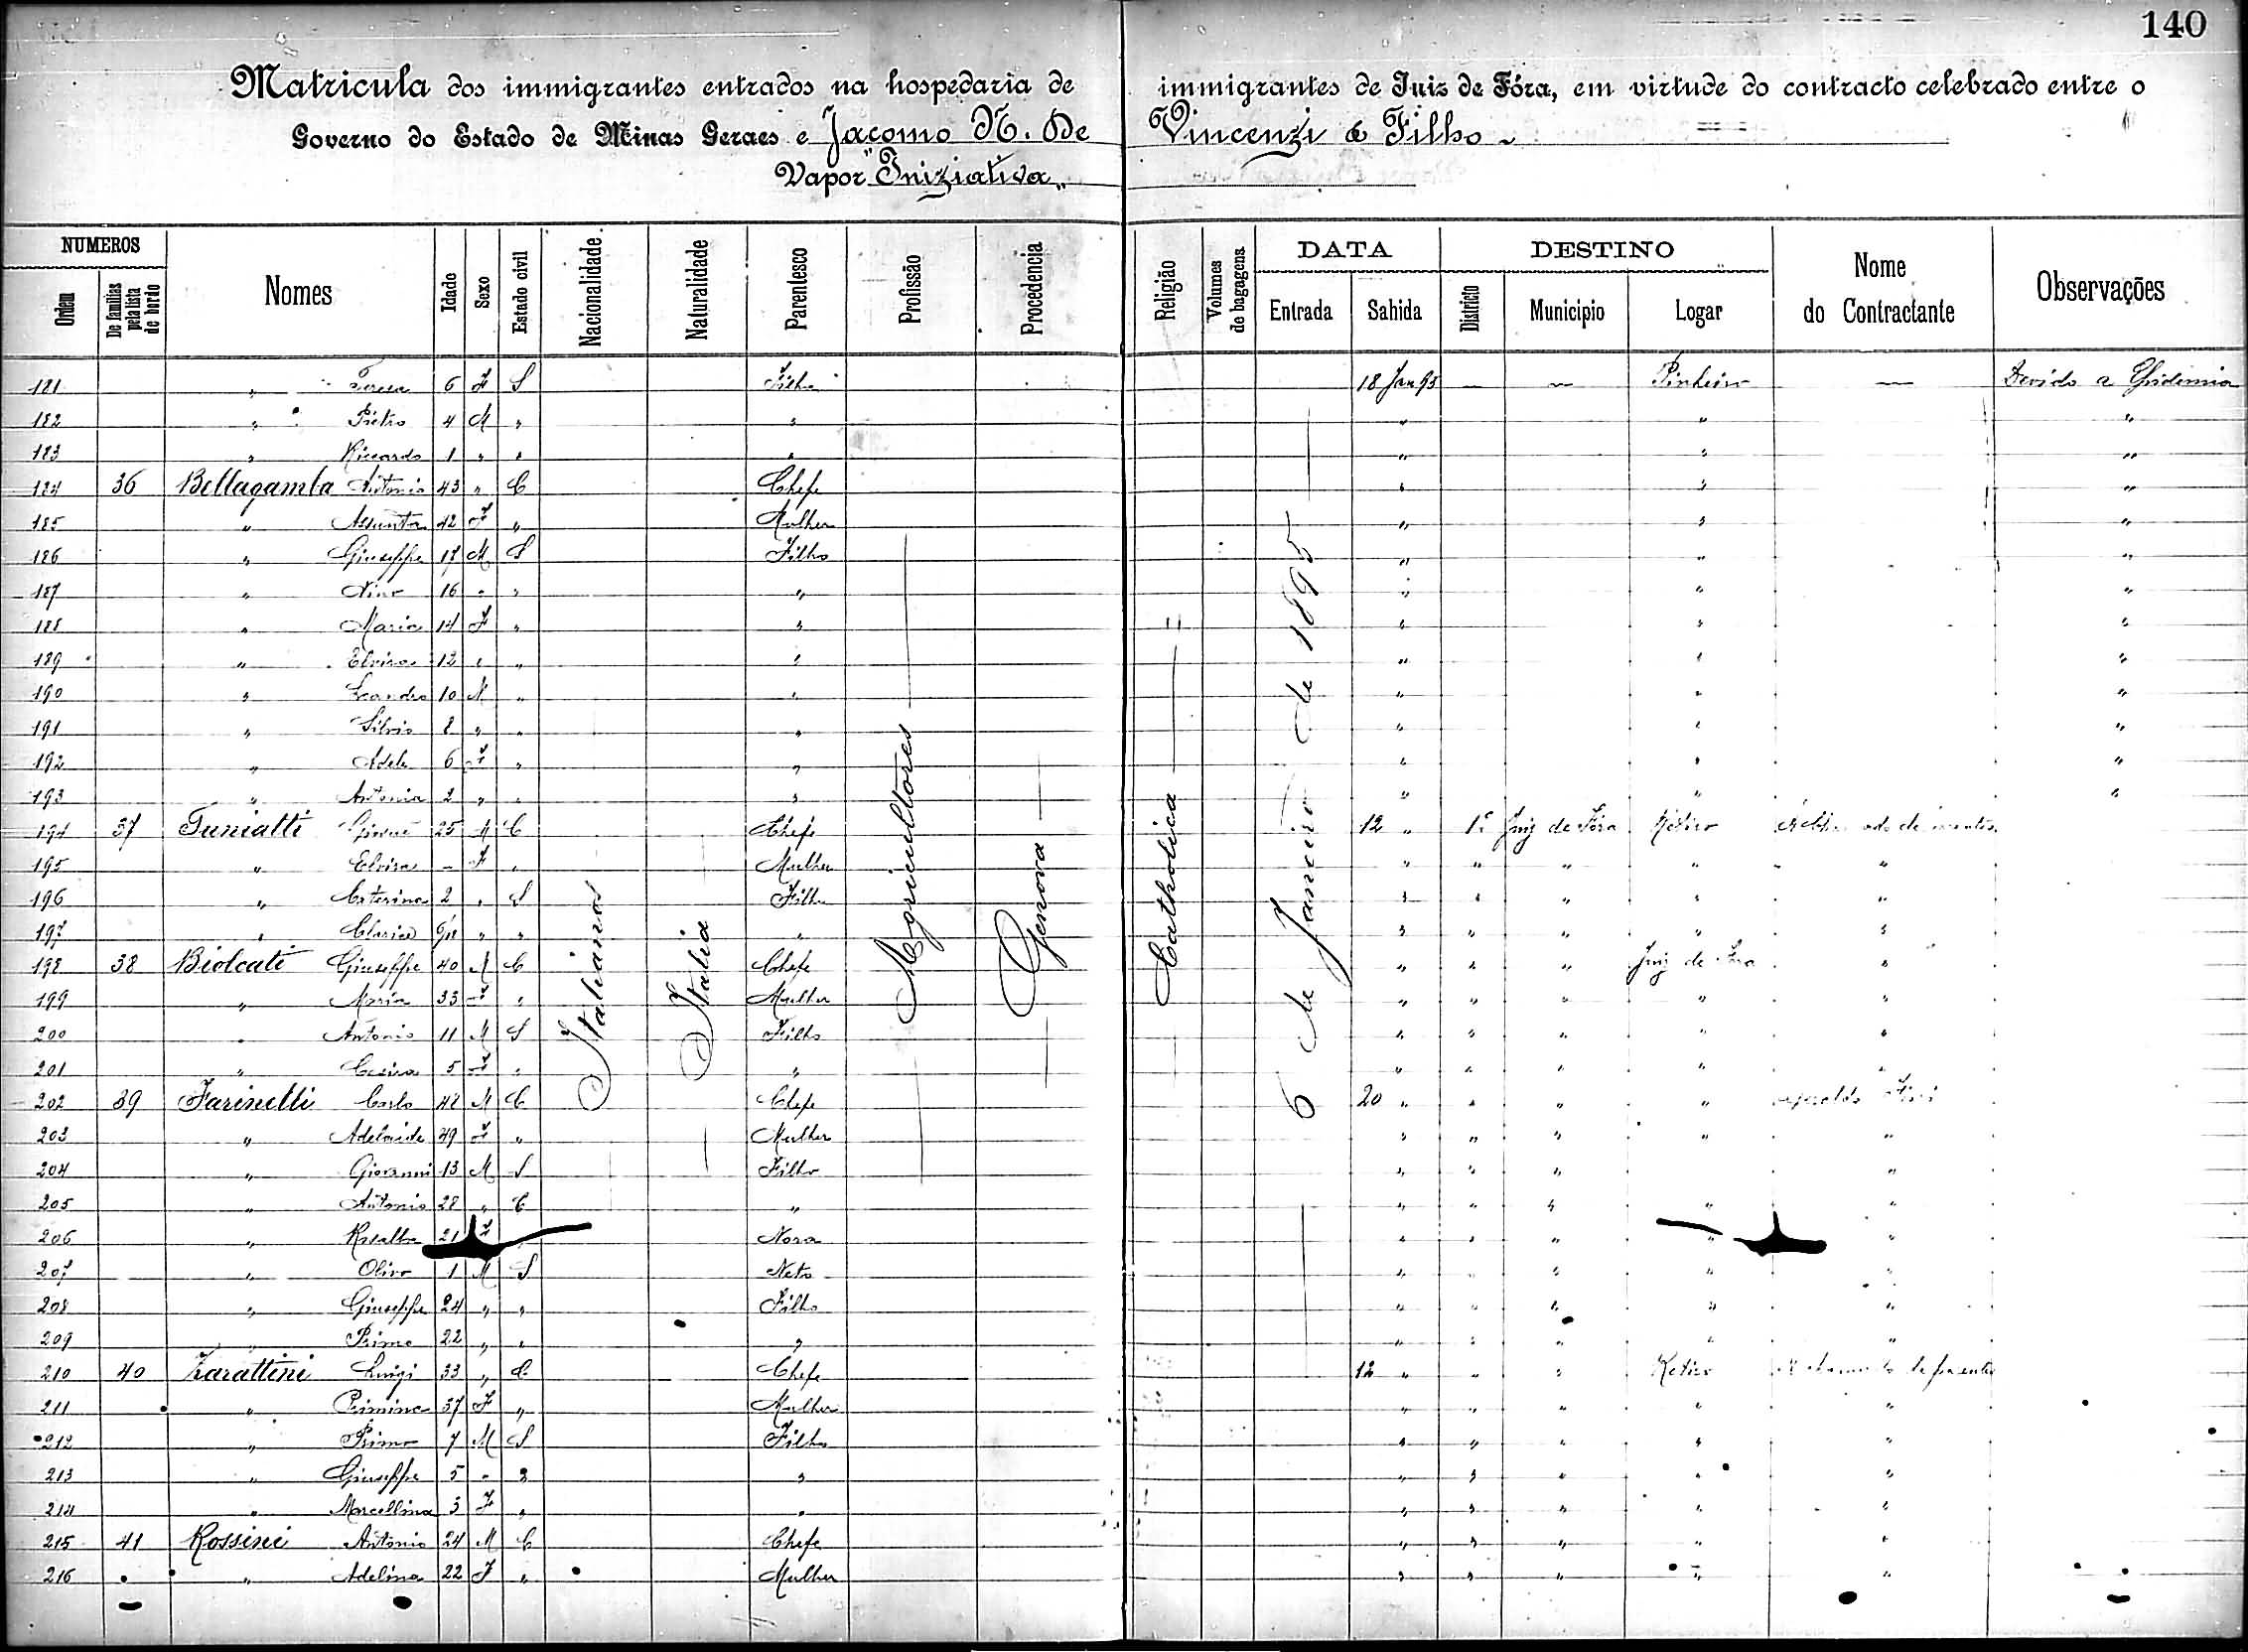 140
Matricula dos immigrantes entrados na hospedaria de immigrantes de Juiz de Fóra, em virtude do contracto celebrado entre o
Governo do Estado de Minas Geraes e Jacomo N. De Vincenzi & Filho
Vapor "Iniziativa"
NUMEROS DATA DESTINO
Ordem De familias pela lista de bordo Nomes Idade Sexo Estado civil Nacionalidade Naturalidade Parentesco Profissão Procedencia Religião Volumes de bagagens Entrada Sahida Districto Municipio Logar Nome do Contractante Observações
Italianos
Italia
Agricultores
Genova
Catholica
6 de Janeiro de 1895
181 " Teresa 6 F S Filha 18 Jan 95 — — Pinheiro — Devido a Epidemia
182 " Pietro 4 M " " " " "
183 " Riccardo 1 " " " " " "
184 36 Bellagamba Antonio 43 " C Chefe " " "
185 " Assunta 42 F " Mulher " " "
186 " Giuseppe 17 M S Filho " " "
187 " Nino 16 " " " " " "
188 " Maria 14 F " " " " "
189 " Elvira 12 " " " " " "
190 " Leandro 10 M " " " " "
191 " Silvio 8 " " " " " "
192 " Adele 6 F " " " " "
193 " Antonia 2 " " " " " "
194 37 Tuniatti 25 M C Chefe 12 " 1º Juiz de Fóra Retiro
195 " Elvira - F " Mulher " " " " "
196 " Caterina 2 " S Filha " " " " "
197 " Clarice " " " " " " " "
198 38 Biolcati Giuseppe 40 M C Chefe " " " Juiz de Fora "
199 " Maria 33 F " Mulher " " " " "
200 " Antonio 11 M S Filho " " " " "
201 " 5 F " " " " " " "
202 39 Farinelli Carlo 48 M C Chefe 20 " " " "
203 " Adelaide 49 F " Mulher " " " " "
204 " Giovanni 13 M S Filho " " " "
205 " Antonio 28 " C " " " " " "
206 " Rosalba 21 F " Nora " " " " "
207 " Olivo 1 M S Neto " " " " "
208 " Giuseppe 24 " " Filho " " " " "
209 " Primo 22 " " " " " " " "
210 40 Zarattini Luigi 33 " C Chefe 12 " " " Retiro
211 " Primina 37 F " Mulher " " " " "
212 " Primo 7 M S Filho " " " " "
213 " Giuseppe 5 " " " " " " " "
214 " Marcellina 3 F " " " " " " "
215 41 Rossini Antonio 24 M C Chefe " " " " "
216 " Adelina 22 F " Mulher " " " " "